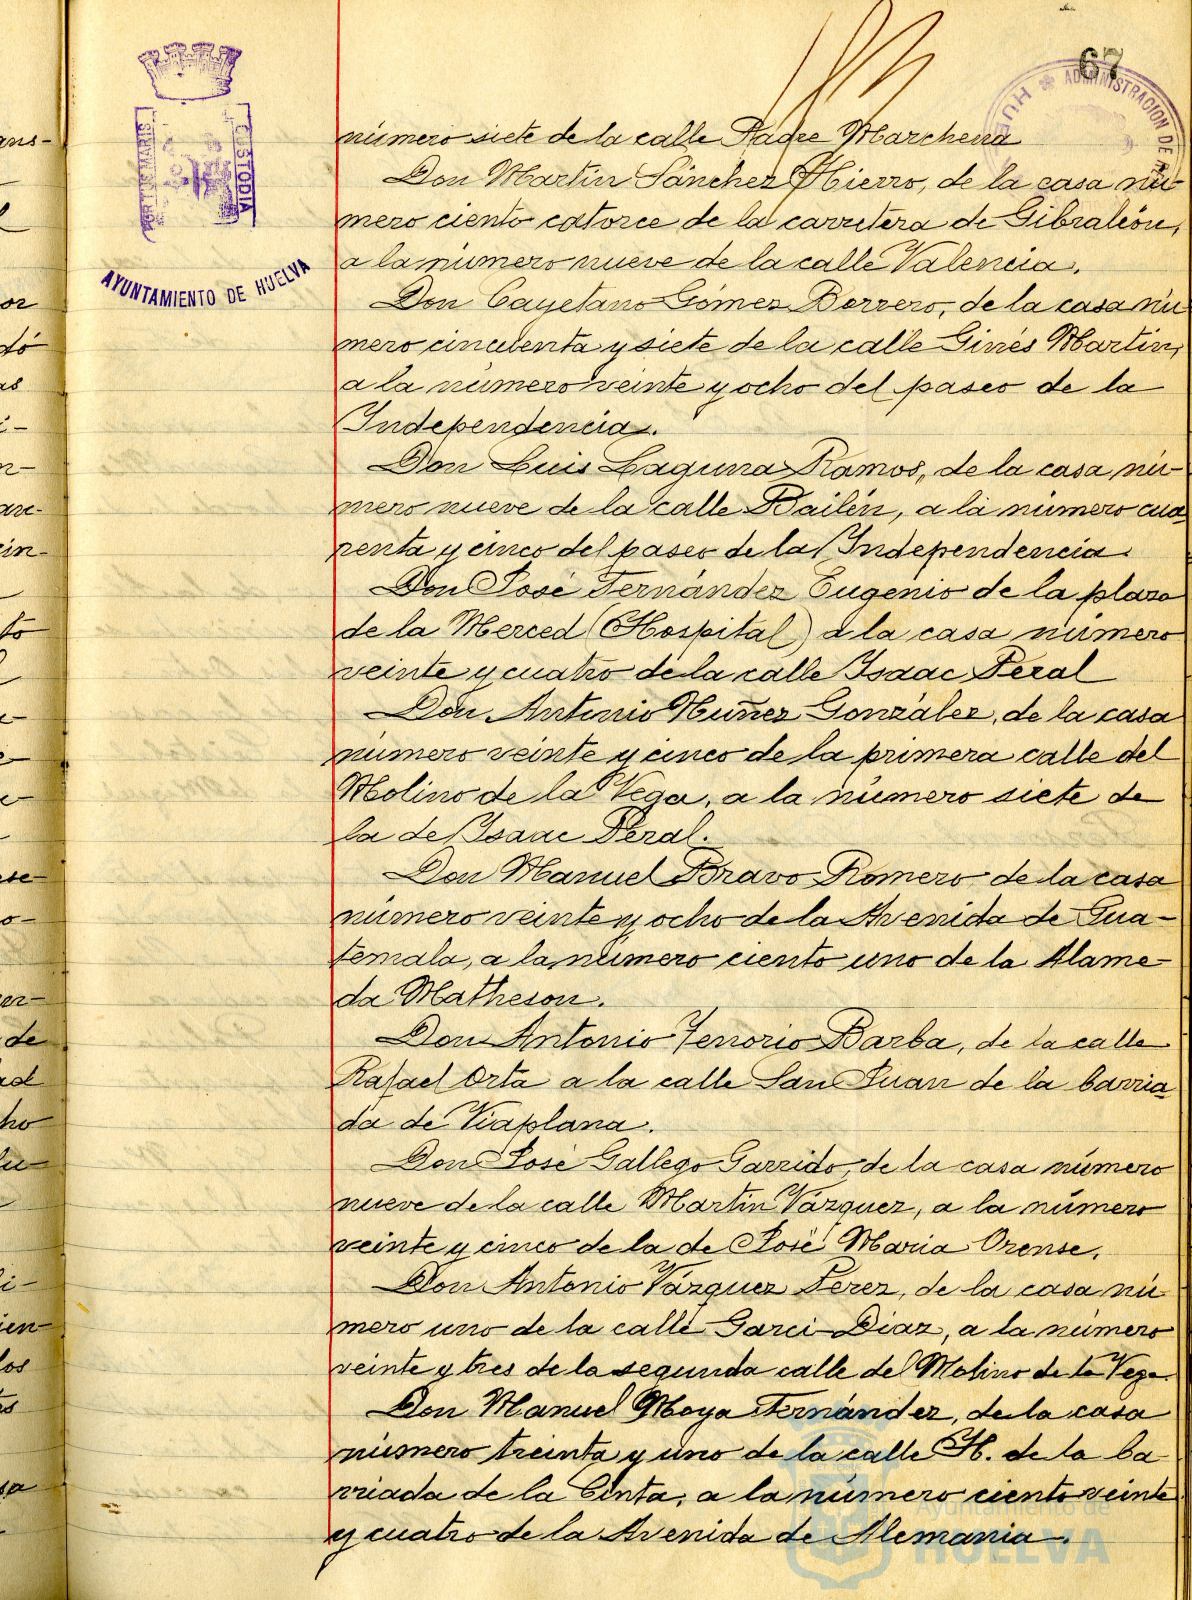 67
ADMINISTRACION DE
PORTUS MARIS
CUSTODIA
AYUNTAMIENTO DE HUELVA
número siete de la calle Padre Marchena
Don Martín Sánchez Hierro, de la casa nú-
mero ciento catorce de la carretera de Gibraleón,
a la número nueve de la calle Valencia.
Don Cayetano Gómez Borrero, de la casa nú
mero cincuenta y siete de la calle Ginés Martín,
a la número veinte y ocho del paseo de la
Independencia.
Don Luis Laguna Ramos, de la casa nú-
mero nueve de la calle Bailén, a la número cua
renta y cinco del paseo de la Independencia.
Don José Fernández Eugenio de la plaza
de la Merced (Hospital) a la casa número
veinte y cuatro de la calle Isaac Peral
Don Antonio Nuñez González, de la casa
número veinte y cinco de la primera calle del
Molino de la Vega, a la número siete de
la de Isaac Peral.
Don Manuel Bravo Romero, de la casa
número veinte y ocho de la Avenida de Gua-
temala, a la número ciento uno de la Alame-
da Matheson.
Don Antonio Tenorio Barba, de la calle
Rafael Orta a la calle San Juan de la barria
da de Viaplana.
Don José Gallego Garrido, de la casa número
nueve de la calle Martín Vázquez, a la número
veinte y cinco de la de José María Orense.
Don Antonio Vázquez Perez, de la casa nú-
mero uno de la calle Garci-Diaz, a la número
veinte y tres de la segunda calle del Molino de la Vega.
Don Manuel Moya Fernández, de la casa
número treinta y uno de la calle H. de la ba-
rriada de la Cinta, a la número ciento veinte
y cuatro de la Avenida de Alemania.
Ayuntamiento de
HUELVA